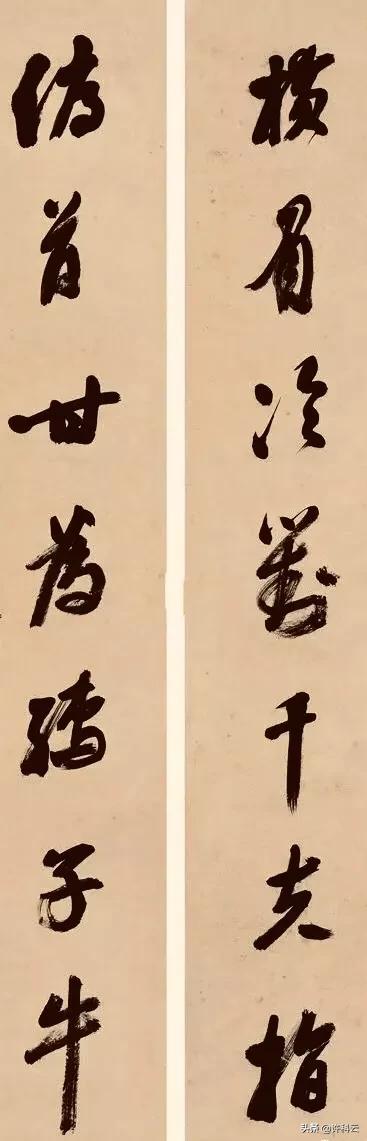 橫眉冷對千夫指
俯首甘為孺子牛
头条 @许科云